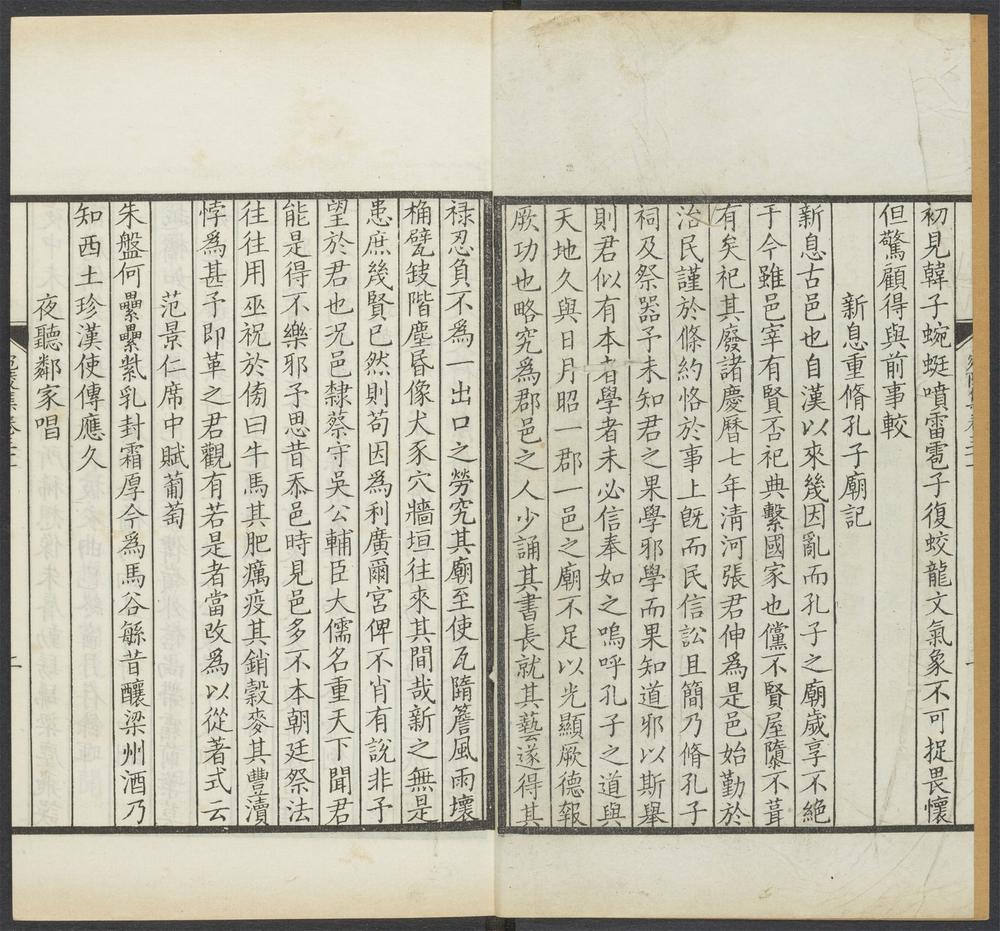 初見韓子蜿蜒噴雷雹子復蛟龍文氣象不可捉畏懷
但驚顧得與前事較
新息重脩孔子廟記
新息古邑也自漢以來幾因亂而孔子之廟歲享不絕
于今雖邑宰有賢否祀典繫國家也儻不賢屋隳不葺
有矣祀其廢諸慶曆七年清河張君伸爲是邑始勤於
治民謹於條約恪於事上旣而民信訟且簡乃脩孔子
祠及祭器予未知君之果學邪學而果知道邪以斯舉
則君似有本者學者未必信奉如之嗚呼孔子之道與
天地久與日月昭一郡一邑之廟不足以光顯厥德報
厥功也略究爲郡邑之人少誦其書長就其藝遂得其
祿忍負不爲一出口之勞究其廟至使瓦隋簷風雨壞
桷甓䥯階塵昬像犬豕穴牆垣往來其間哉新之無是
患庶幾賢已然則苟因爲利廣爾宮俾不肖有說非予
望於君也况邑隸蔡守吳公輔臣大儒名重天下聞君
能是得不樂邪予思昔忝邑時見邑多不本朝廷祭法
往往用巫祝於傍曰牛馬其肥癘疫其銷穀麥其豐瀆
悖爲甚予即革之君觀有若是者當改爲以從著式云
范景仁席中賦葡萄
朱盤何纍纍紫乳封霜厚今爲馬谷繇昔釀梁州酒乃
知西土珍漢使傳應久
夜聽鄰家唱